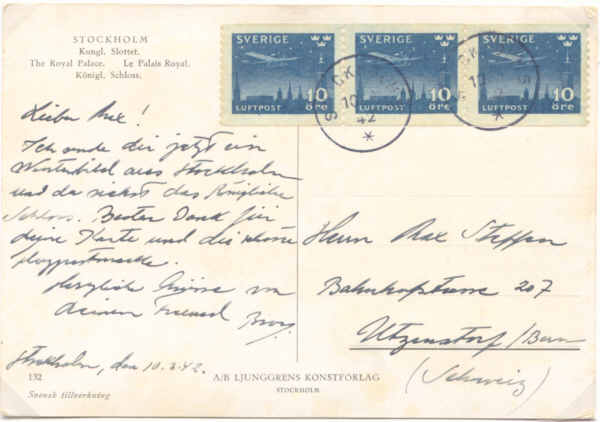 STOCKHOLM
Kungl. Slottet.
The Royal Palace. Le Palais Royal.
Königl. Schloss.
SVERIGE
LUFTPOST 10 öre
SVERIGE
LUFTPOST 10 öre
SVERIGE
LUFTPOST 10 öre
Lieber Max!
Ich sende dir jetzt ein
Winterbild aus Stockholm
und du siehst das Königliche
Schloss. Besten Dank für
deine Karte und die schöne
Flugpostmarke.
Herzliche Grüsse von
deinem Freund
Stockholm, den 10.3.42.
Herrn Max Steffen
Bahnhofstrasse 207
Utzenstorf/Bern
(Schweiz)
132
Svensk tillverkning
A/B LJUNGGRENS KONSTFÖRLAG
STOCKHOLM